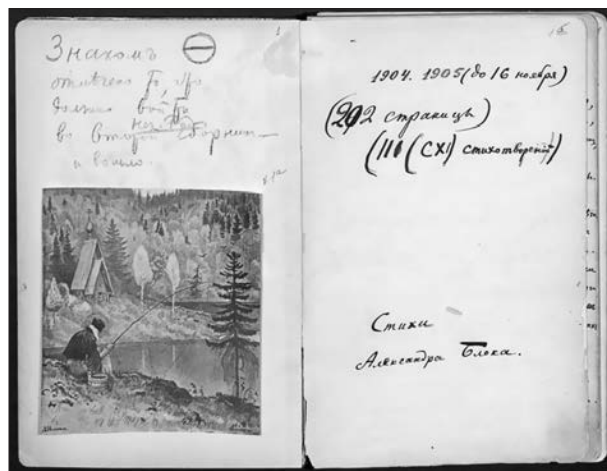 Знакомъ
отмѣчено то, что
должно войти
во второй сборникъ
и вошло.
1904. 1905 (до 16 ноября)
(202 страницы)
(111 (CXI) стихотвореній)
Стихи
Александра Блока.